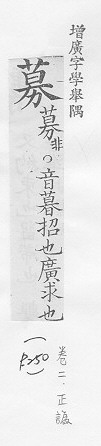 增廣字學舉隅
卷二.正譌
募募非。音暮招也廣求也
(P.250)